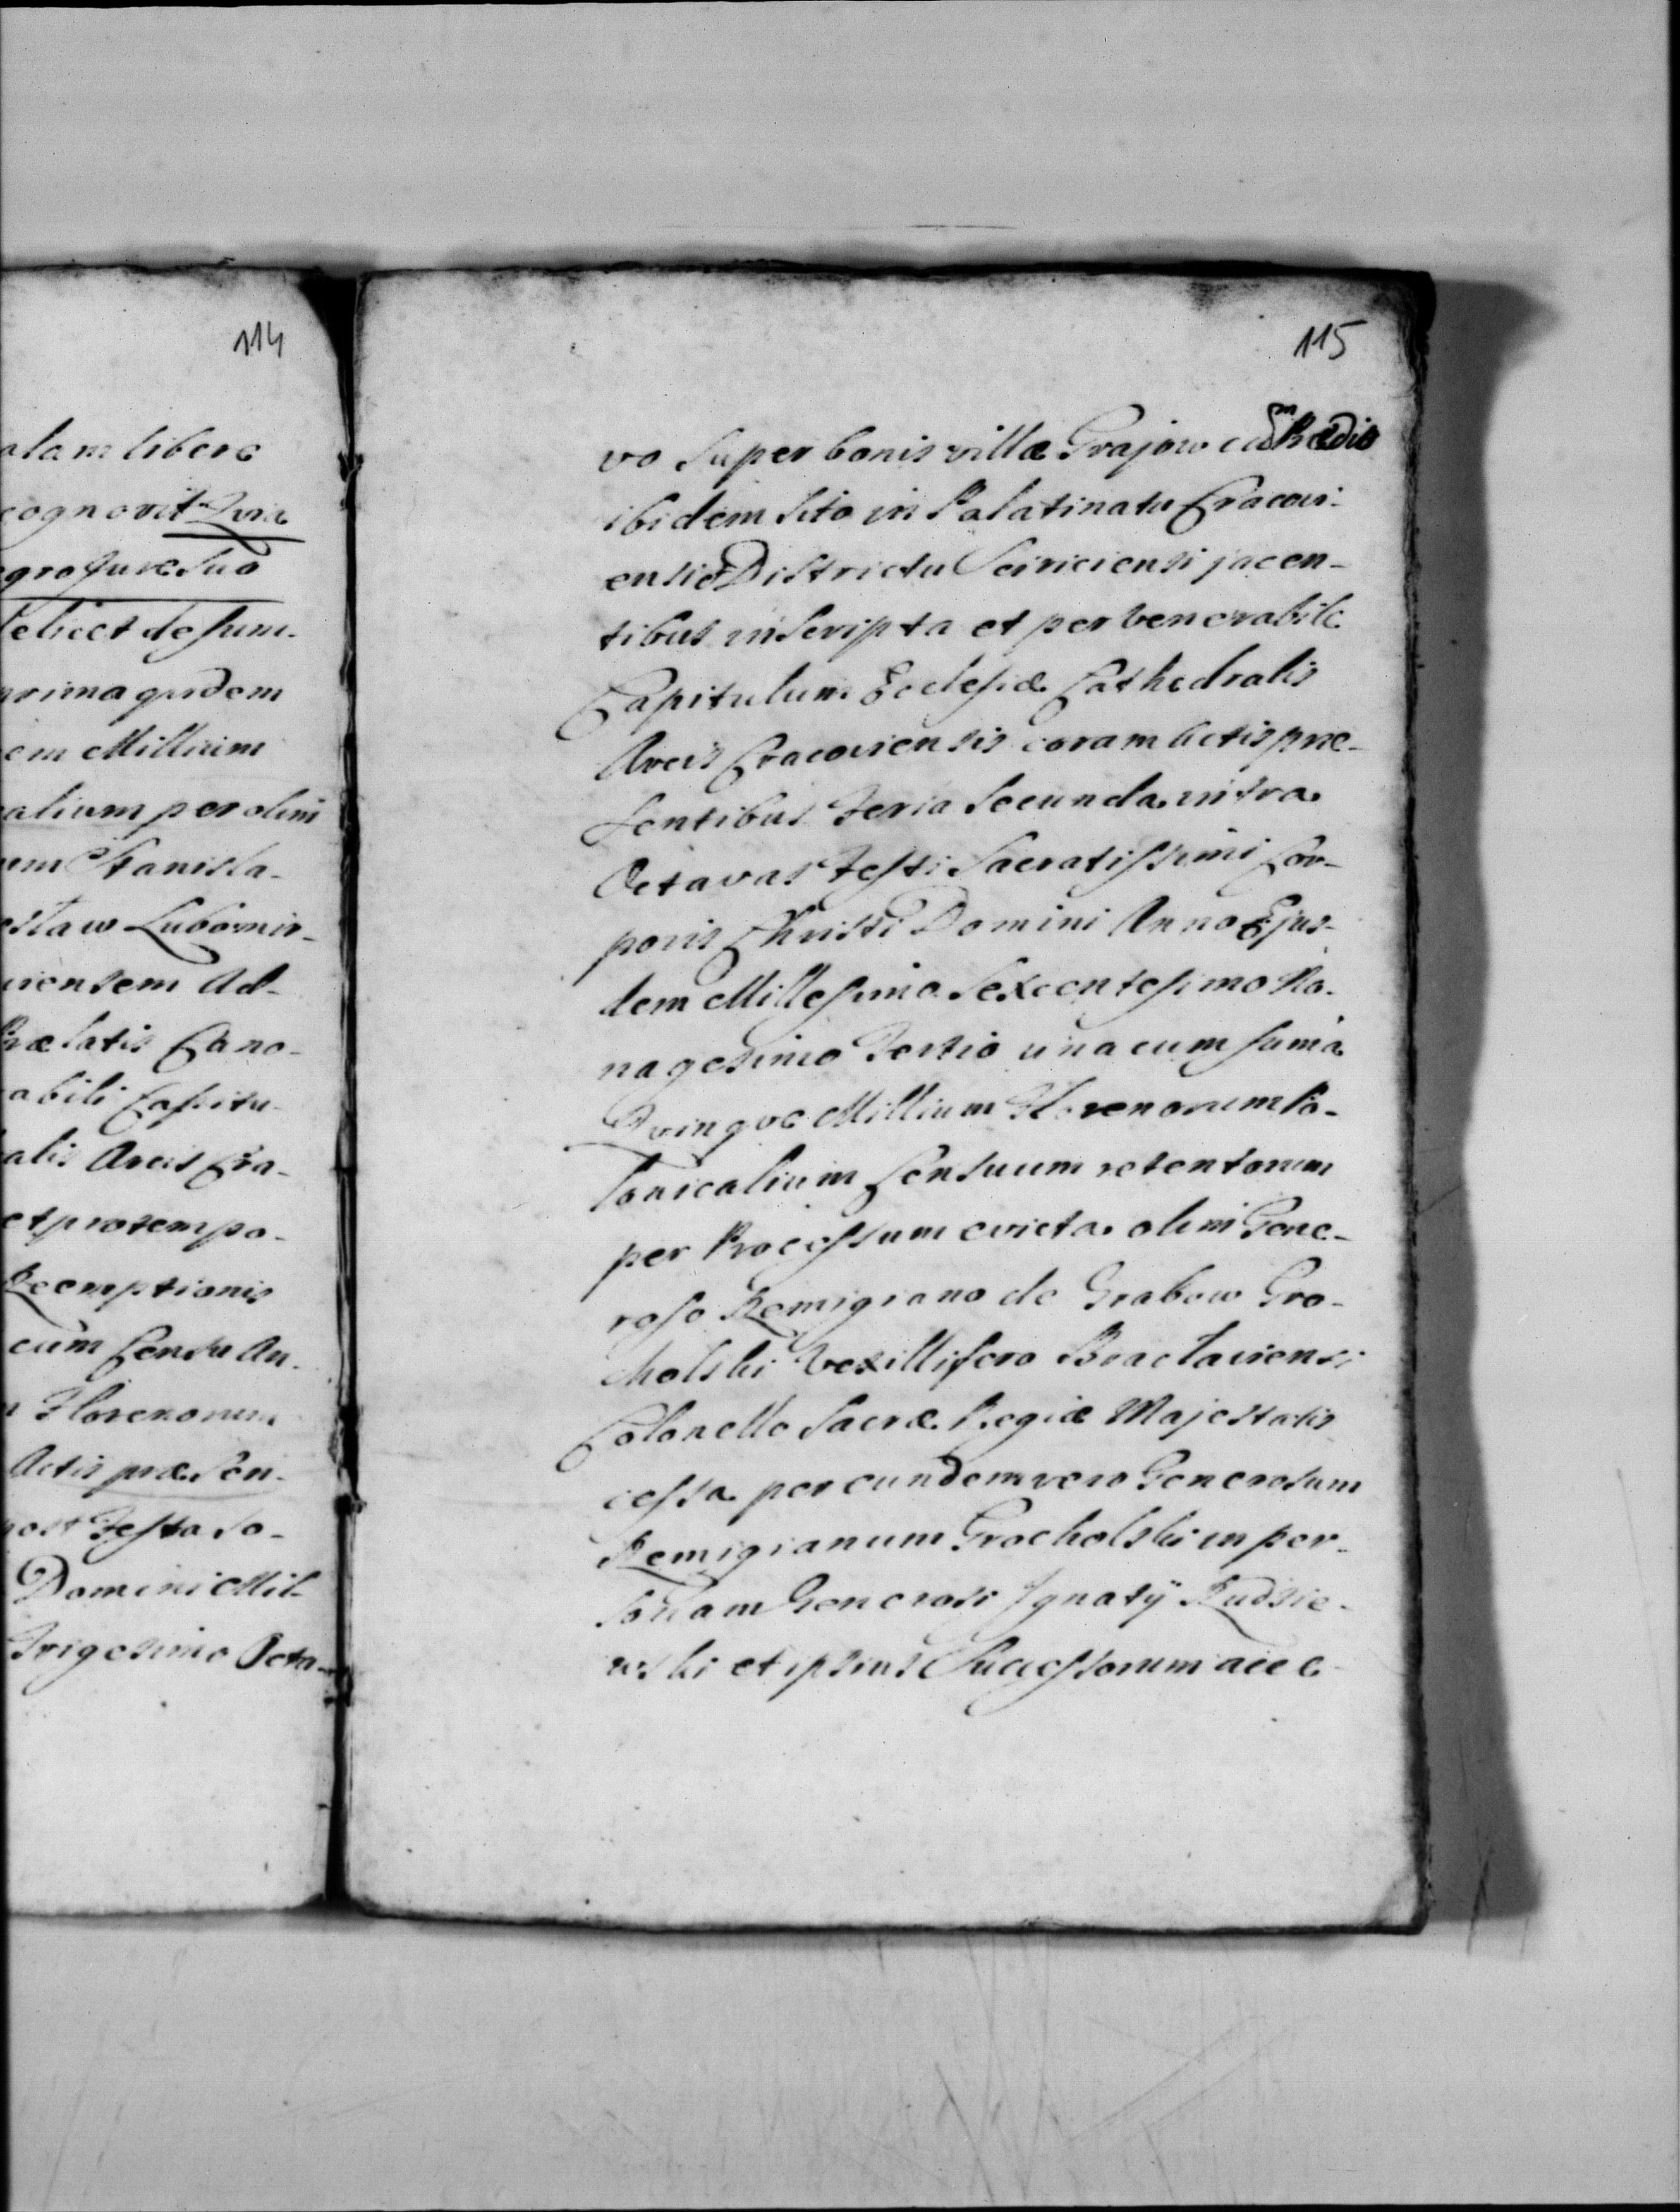 114
alam libere
cognovit Qvia
egro Jure Suo
delicet de sum-
prima qvidem
em Millium
alium per olim
um Stanisla-
islaw Lubomir-
viensem Ad-
Prælatis Cano-
abili Capitu-
alis Arcis Cra-
et protempo-
Reemptionis
cum Censu An-
Florenorum
Actis præsen-
post Festa So-
Domini Mil-
Trigesimo Octa-
115
vo Super bonis villæ Grajow cum Prædio
ibidem Sito in Palatinatu Cracovi-
ensi et Districtu Sciriciensi jacen-
tibus inscripta et per venerabile
Capitulum Ecclesiæ Cathedralis
Arcis Cracoviensis coram Actis præ-
sentibus Feria Secunda intra
Octavas Festi Sacratissimi Cor-
poris Christi Domini Anno Ejus-
dem Millesimo Sexcentesimo No-
nagesimo Tertio una cum suma
Qvinqve Millium Florenorum Po-
lonicalium Censuum retentorum
per Processum evicta olim Gene-
roso Remigiano de Grabow Gro-
cholski Vexillifero Braclaviensi
Colonello Sacræ Regiæ Majestatis
cessa per eundem vero Generosum
Remigianum Grocholski in per-
sonam Generosi Ignatÿ Rudzie-
wski et ipsius Successorum ac e